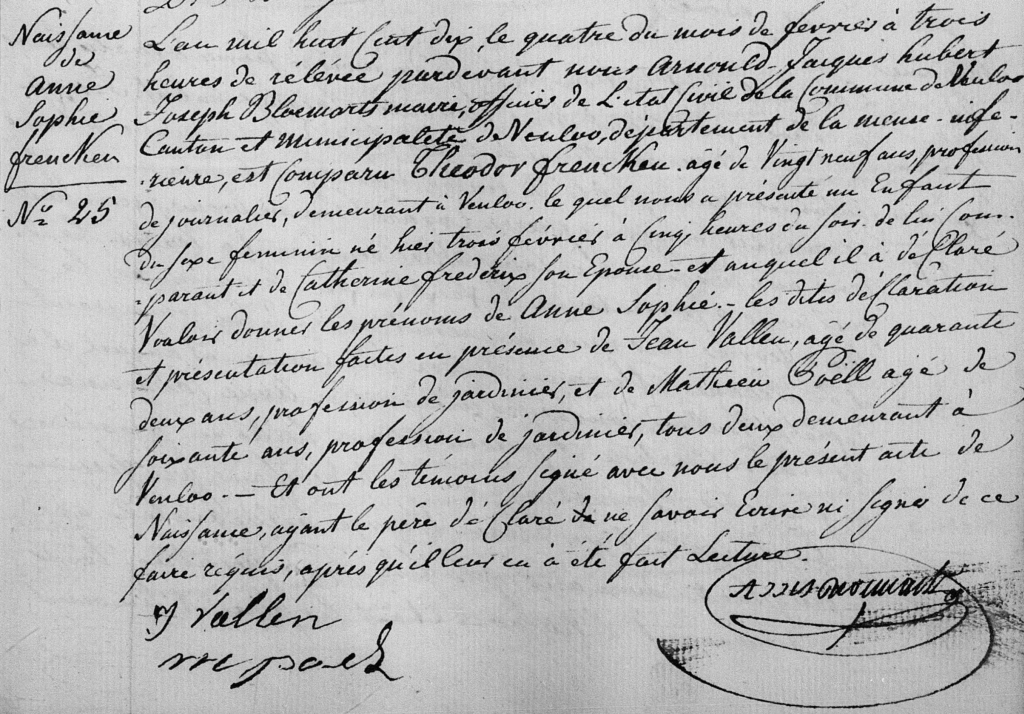 Naissance
de
Anne
Sophie
frencken
No. 25
L'an mil huit Cent dix, le quatre du mois de février à trois
heures de rélévée pardevant nous Arnould Jacques hubert
Joseph Bloemarts maire, officier de L'Etat Civil de la Commune de Venloo
Canton et Municipalité de Venloo, département de la meuse-infe-
-rieure, est Comparu Théodor frencken agé de Vingt neuf ans, profession
de journalier, demeurant à Venloo. le quel nous a présenté un Enfant
du sexe feminin né hier trois février à Cinq heures du Soir de lui Com-
-parant et de Catherine frederix son Epouse et auquel il à déClaré
Vouloir donner les prénoms de Anne Sophie. - les dites déClaration
et présentation faites en présence de Jean Vallen, agé de quarante
deux ans, profession de jardinier, et de Mathieu Poëll agé de
soixante ans, profession de jardinier, tous deux demeurant à
Venloo. - Et ont les témoins signé avec nous le présent acte de
Naissance, ayant le père déClaré de ne savoir Ecrire ni signer de ce
faire réquis, après qu'il leur en à été fait Lecture.
J Vallen